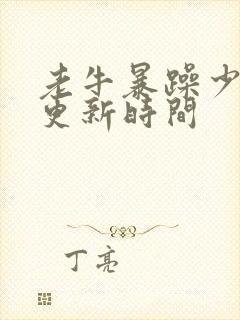 老牛暴躁少
更新時間
丁亮